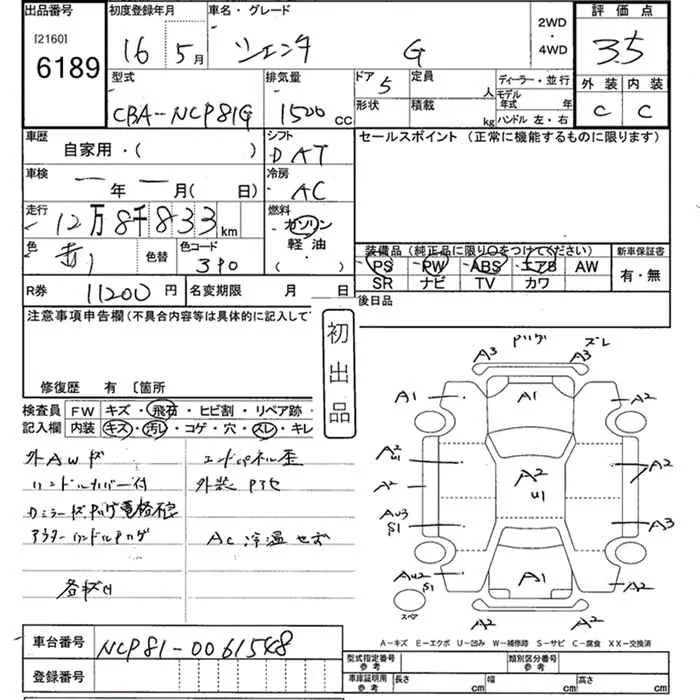 出品番号 初度登録年月 車名・グレード 2WD・4WD 評価点
[2160] 6189 16 5月 シエンタ G 3.5
型式 排気量 ドア 定員 人 ディーラー・並行 外装 内装
CBA-NCP81G 1500 CC 5 形状 積載 kg モデル年式 年 ハンドル 左・右 C C
車歴 シフト セールスポイント (正常に機能するものに限ります)
自家用・( ) DAT
車検 冷房
ー年ー月( 日) AC
走行 燃料
12万8千833km ガソリン
色 色替 色コード 軽油 装備品 (純正品に限り〇をつけてください) 新車保証書
赤 390 ( ) PS PW ABS エアB AW 有・無
SR ナビ TV カワ
R券 11200円 名変期限 月 日 後日品
注意事項申告欄(不具合内容等は具体的に記入して
初出品
修復歴 有 〔箇所
検査員 FW キズ・飛石・ヒビ割・リペア跡・
記入欄 内装 キズ・汚レ・コゲ・穴・スレ・キレ
外AWキズ
ハンドルカバー付
アウターハンドル
各キズ凹
AC 冷温 せず
ズレ
A3 A3
A1 A1 A2
A2 U1 A2 U1 A2
A2
AU3 S1 A3
AU2 S1 A1 A2
スペア A2 A2
A-キズ E-エクボ U-凹み W-補修跡 S-サビ C-腐食 XX-交換済
車台番号 NCP81-0061548
型式指定番号 参考 類別区分番号 参考
登録番号
車庫証明用 参考 長さ cm 幅 cm 高さ cm